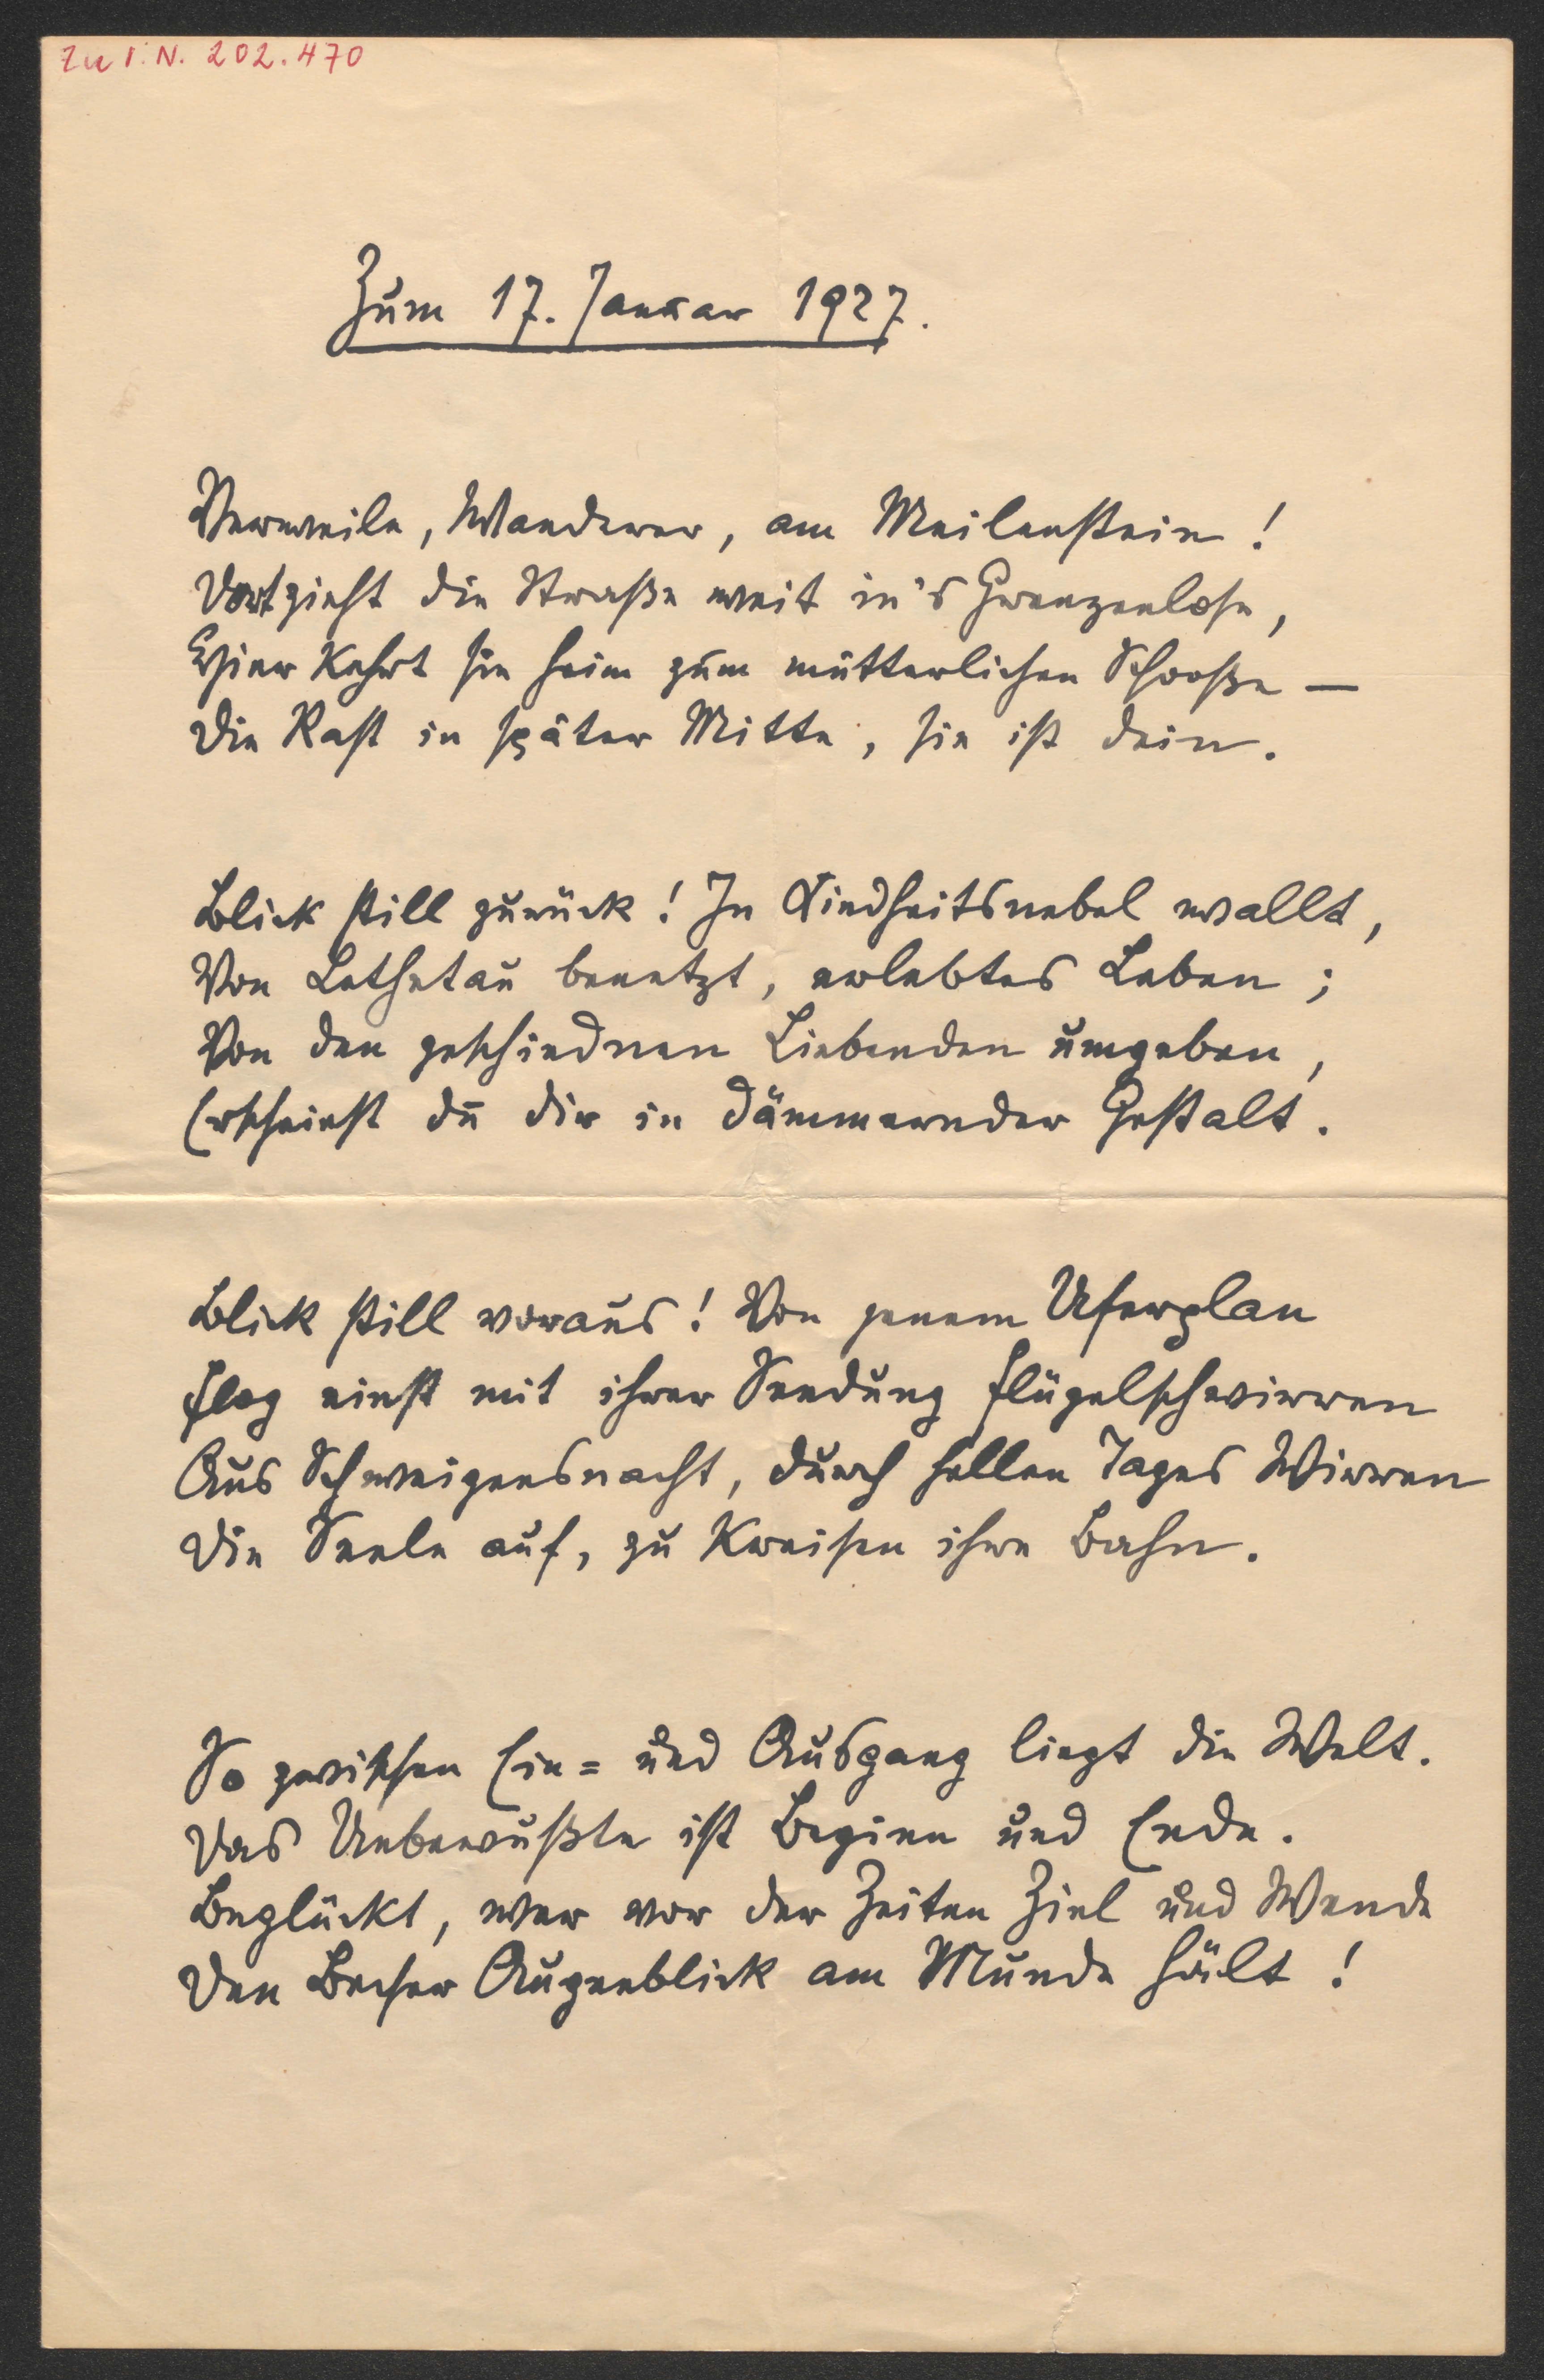 Zu I.N. 202.470
Zum 17. Januar 1927.
Verweile, Wanderer, am Meilenstein!
Dort zieht die Straße weit in's Grenzenlose,
Hier kehrt sie heim zum mütterlichen Schooße —
Die Rast in später Mitte, sie ist dein.
Blick still zurück! In Kindheitsnebel wallt,
Von Lethetau benetzt, erlebtes Leben;
Von den geschiednen Liebenden umgeben,
Erscheinst du dir in dämmernder Gestalt.
Blick still voraus! Von jenem Uferplan
Flog einst mit ihrer Sendung Flügelschwirren
Aus Schweigensnacht, durch hellen Tages Wirren
Die Seele auf, zu kreisen ihre Bahn.
So zwischen Ein= und Ausgang liegt die Welt.
Das Unbewußte ist Beginn und Ende.
Beglückt, wer vor der Zeiten Ziel und Wende
Den Becher Augenblick am Munde hält!